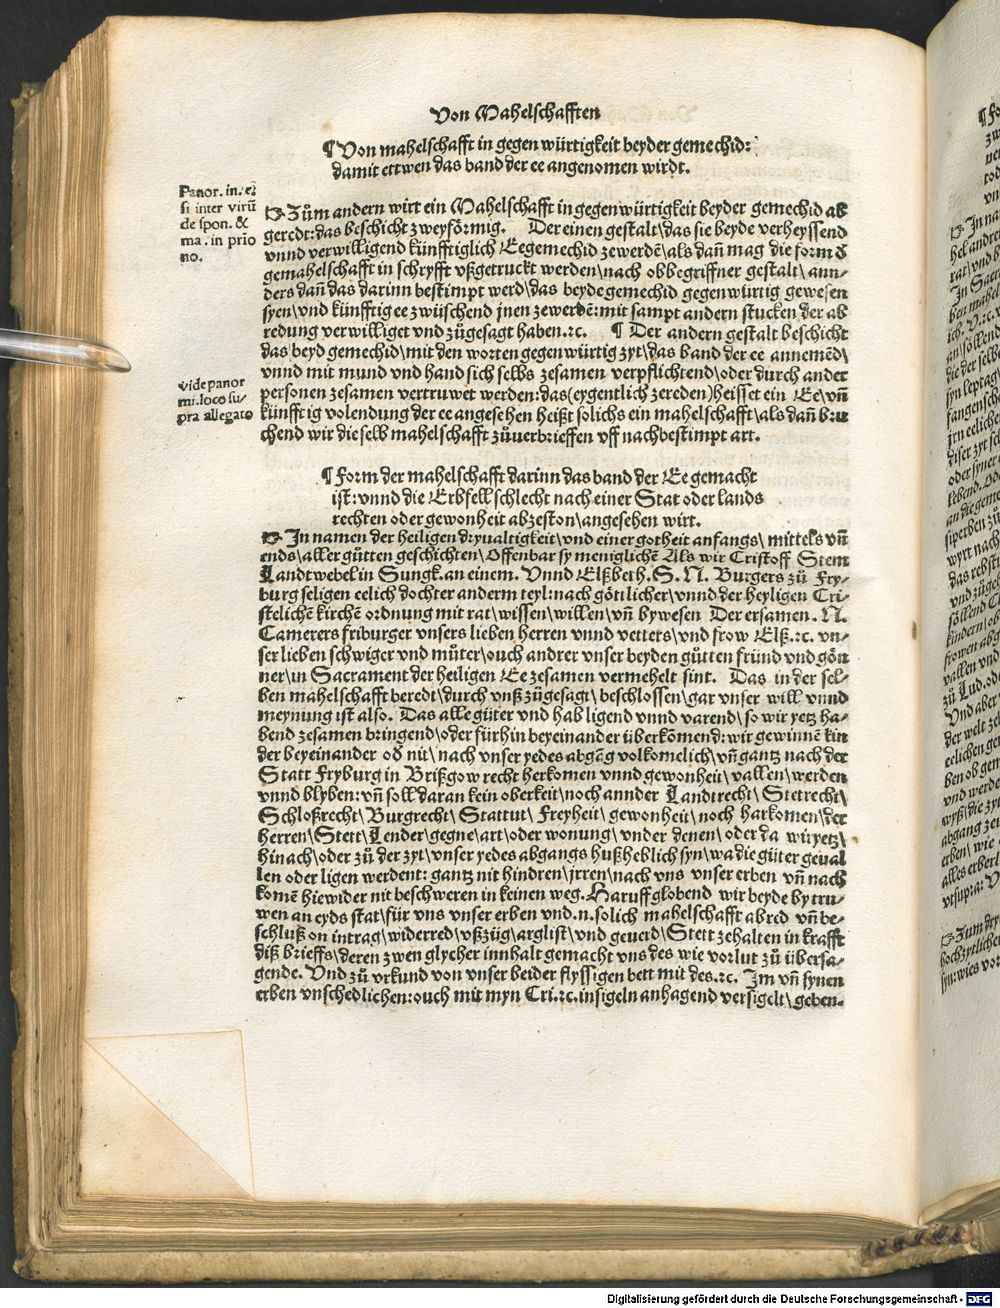 Von Mahelschafften
¶ Von mahelschafft in gegen würtigkeit beyder gemechid:
damit ettwen das band der ee angenomen wirdt.
Panor. in.
si inter virū
de spon. &
ma. in prio
no.
☞ Zům andern wirt ein Mahelschafft in gegenwürtigkeit beyder gemechid ab
geredt: das beschicht zweyförmig. Der einen gestalt\das sie beyde verheyssend
vnnd verwilligend künfftiglich Eegemechid zewerdē\als dañ mag die form ď
gemahelschafft in schryfft vßgetruckt werden\nach obbegriffner gestalt\ ann⸗
ders dañ das darinn bestimpt werd\das beyde gemechid gegenwürtig gewesen
syen\vnd künfftig ee zwüschend jnen zewerdē: mit sampt andern stucken der ab
redung verwilliget vnd zůgesagt haben.ꝛc. ¶ Der andern gestalt beschicht
das beyd gemechid\mit den worten gegenwürtig zyt\das band der ee annemēd\
vnnd mit mund vnd hand sich selbs zesamen verpflichtend\oder durch ander
personen zesamen vertruwet werden: das(eygentlich zereden)heisset ein Ee\vñ
künfftig volendung der ee angesehen heißt solichs ein mahelschafft\als dañ bru
chend wir die selb mahelschafft zůuerbrieffen vff nachbestimpt art.
vide panor
mi. loco su⸗
pra allegato
¶ Form der mahelschafft darinn das band der Ee gemacht
ist: vnnd die Erbfell schlecht nach einer Stat oder lands
rechten oder gewonheit abzeston\angesehen wirt.
☞ In namen der heiligen dryualtigkeit\vnd einer gotheit anfangs\ mittels vñ
ends\aller gůtten geschichten\Offenbar sy meniglichē Als wir Cristoff Stem
Landtwebel in Sungk. an einem. Vnnd Elßbeth. S. N. Burgers zů Fry⸗
burg seligen eelich dochter anderm teyl: nach göttlicher\vnnd der heyligen Cri⸗
stelichē kirchē ordnung mit rat\wissen\willen\vñ bywesen Der ersamen. N.
Camerers friburger vnsers lieben herren vnnd vetters\vnd frow Elß.ꝛc. vn⸗
ser lieben schwiger vnd můter\ouch andrer vnser beyden gůtten fründ vnd gön
ner\in Sacrament der heiligen Ee zesamen vermehelt sint. Das in der sel⸗
ben mahelschafft beredt\durch vnß zůgesagt\ beschlossen\gar vnser will vnnd
meynung ist also. Das alle güter vnd hab ligend vnnd varend\so wir yetz ha⸗
bend zesamen bringend\oder fürhin beyeinander überkōmend: wir gewinnē kin
der beyeinander oď nit\nach vnser yedes abgēg volkomelich\vñ gantz nach der
Statt Fryburg in Brißgow recht herkomen vnnd gewonheit\vallen\werden
vnnd blyben: vñ soll daran kein oberkeit\noch annder Landtrecht\ Stetrecht\
Schloßrecht\Burgrecht\ Stattut\ Freyheit\gewonheit\noch harkomen\der
herren\Stett\Lender\gegne\art\oder wonung\ vnder denen\oder da wir yetz\
hinach\oder zů der zyt\vnser yedes abgangs hußheblich syn\wa die güter geual
len oder ligen werdent: gantz nit hindren\jrren\nach vns vnser erben vñ nach
komē hiewider nit beschweren in keinen weg. Haruff globend wir beyde by tru⸗
wen an eyds stat\für vns vnser erben vnd.n.solich mahelschafft abred vñ be⸗
schluß on intrag\widerred\vßzüg\arglist\vnd geuerd\Stett zehalten in krafft
diß brieffs\deren zwen glycher innhalt gemacht vns des wie vorlut zů übersa⸗
gende. Vnd zů vrkund von vnser beider flyssigen bett mit des.ꝛc. Im vñ synen
erben vnschedlichen: ouch mit myn Cri.ꝛc. insigeln anhagend versigelt\ geben.
Digitalisierung gefördert durch die Deutsche Forschungsgemeinschaft - DFG